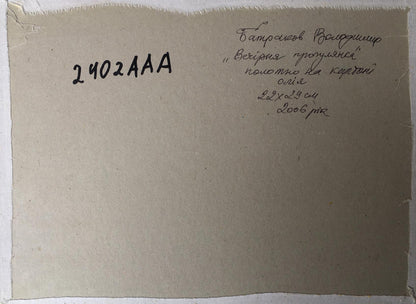 Батраков Володимир
„Вечірня прогулянка"
полотно на картоні
олія
22х29 см
2006 рік
2402ААА